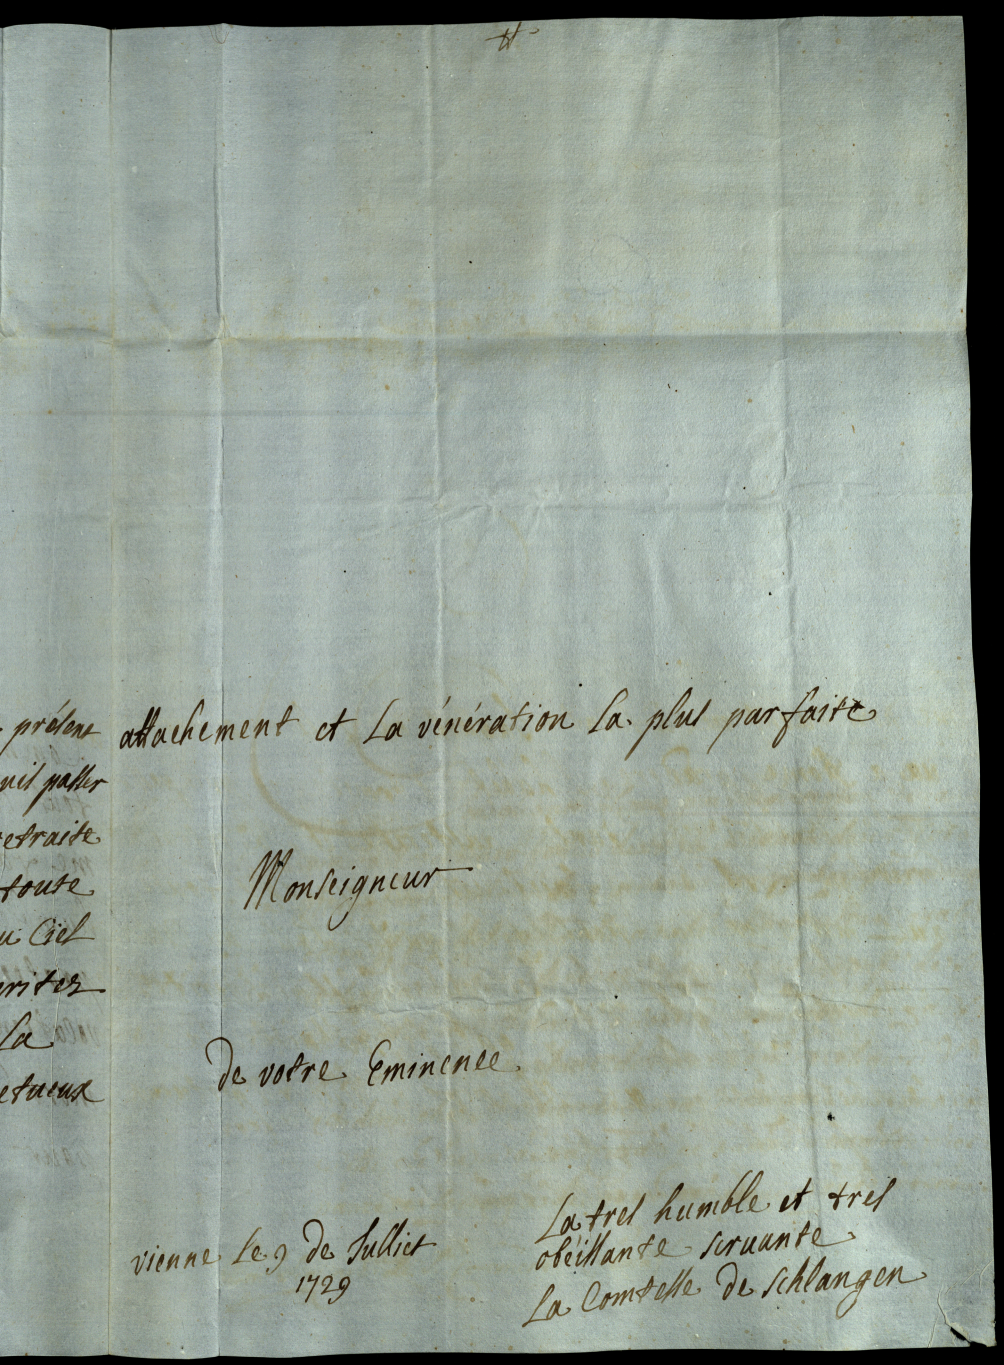 présent
passer
retraite
toute
Ciel
La
attachement et La vénération La plus parfaite
Monseigneur
De votre Eminence
vienne Le 9 de Julliet
1729
La tres humble et tres
obéissante servante
La Comtesse De Schlangen